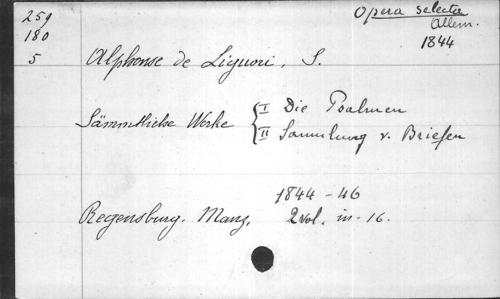 259
180
5
Opera selecta
Allem.
1844
Alphonse de Liguori, S.
Sämmtliche Werke { I Die Psalmen
II Sammlung v. Briefen
1844-46
Regensburg. Manz, 2 vol. in-16.